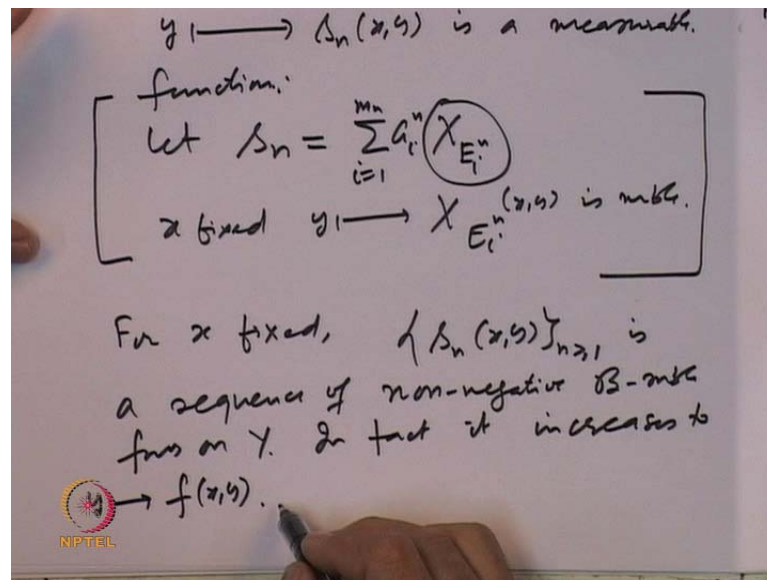 y ⟼ s_n(x,y) is a measurable.
function.
Let s_n = \sum_{i=1}^{m_n} a_i^n X_{E_i^n}
x fixed y ⟼ X_{E_i^n}(x,y) is mble.
For x fixed, {s_n(x,y)}_{n≥1} is
a sequence of non-negative B-mble
fns on Y. In fact it increases to
⟶ f(x,y).
NPTEL